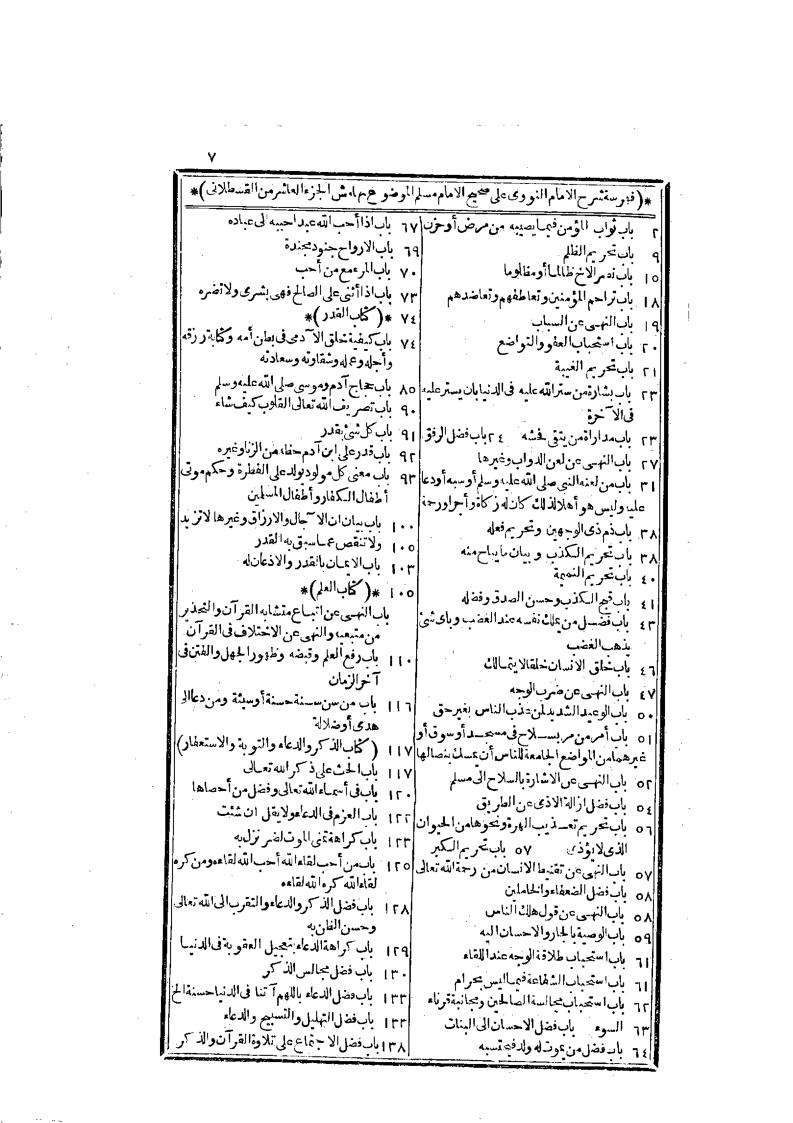 ٧
*(فهرسة شرح الامام النووى على صحيح الامام مسلم الموضوع بهامش الجزء العاشر من القسطلانى)*
٢ باب ثواب المؤمن فيما يصيبه من مرض أو حزن
٩ باب تحريم الظلم
١٥ باب نصر الاخ ظالما أو مظلوما
١٨ باب تراحم المؤمنين وتعاطفهم وتعاضدهم
١٩ باب النهى عن السباب
٢٠ باب استحباب العفو والتواضع
٢١ باب تحريم الغيبة
٢٣ باب بشارة من ستر الله عليه فى الدنيا بان يستر عليه
فى الآخرة
٢٣ باب مداراة من يتقى فحشه ٢٤ باب فضل الرفق
٢٧ باب النهى عن لعن الدواب وغيرها
٣١ باب من لعنه النبى صلى الله عليه وسلم أو سبه أو دعا
عليه وليس هو أهلا لذلك كان له زكاة وأجرا ورحمة
٣٨ باب ذم ذى الوجهين وتحريم فعله
٣٨ باب تحريم الكذب وبيان ما يباح منه
٤٠ باب تحريم النميمة
٤١ باب قبح الكذب وحسن الصدق وفضله
٤٣ باب فضل من يملك نفسه عند الغضب وباى شئ
يذهب الغضب
٤٦ باب خلق الانسان خلقا لا يتمالك
٤٧ باب النهى عن ضرب الوجه
٥٠ باب الوعيد الشديد لمن عذب الناس بغير حق
٥١ باب أمر من مر بسلاح فى مسجد أو سوق أو
غيرهما من المواضع الجامعة للناس أن يمسك بنصالها
٥٢ باب النهى عن الاشارة بالسلاح الى مسلم
٥٤ باب فضل ازالة الاذى عن الطريق
٥٦ باب تحريم تعذيب الهرة ونحوها من الحيوان
الذى لا يؤذى ٥٧ باب تحريم الكبر
٥٧ باب النهى عن تقنيط الانسان من رحمة الله تعالى
٥٨ باب فضل الضعفاء والخاملين
٥٨ باب النهى عن قول هلك الناس
٥٩ باب الوصية بالجار والاحسان اليه
٦١ باب استحباب طلاقة الوجه عند اللقاء
٦١ باب استحباب الشفاعة فيما ليس بحرام
٦٢ باب استحباب مجالسة الصالحين ومجانبة قرناء
٦٣ السوء باب فضل الاحسان الى البنات
٦٤ باب فضل من يموت له ولد فيحتسبه
٦٧ باب اذا أحب الله عبدا حببه الى عباده
٦٩ باب الارواح جنود مجندة
٧٠ باب المرء مع من أحب
٧٣ باب اذا أثنى على الصالح فهى بشرى ولا تضره
٧٤ *(كتاب القدر)*
٧٤ باب كيفية خلق الآدمى فى بطن أمه وكتابة رزقه
وأجله وعمله وشقاوته وسعادته
٨٥ باب حجاج آدم وموسى صلى الله عليه وسلم
٩٠ باب تصريف الله تعالى القلوب كيف شاء
٩١ باب كل شئ بقدر
٩٢ باب قدر على ابن آدم حظه من الزنا وغيره
٩٣ باب معنى كل مولود يولد على الفطرة وحكم موتى
أطفال الكفار وأطفال المسلمين
١٠٠ باب بيان ان الآجال والارزاق وغيرها لا تزيد
١٠٥ ولا تنقص عما سبق به القدر
١٠٣ باب الايمان بالقدر والاذعان له
١٠٥ *(كتاب العلم)*
باب النهى عن اتباع متشابه القرآن والتحذير
من متبعيه والنهى عن الاختلاف فى القرآن
١١٠ باب رفع العلم وقبضه وظهور الجهل والفتن فى
آخر الزمان
١١٦ باب من سن سنة حسنة أو سيئة ومن دعا الى
هدى أو ضلالة
١١٧ (كتاب الذكر والدعاء والتوبة والاستغفار)
١١٧ باب الحث على ذكر الله تعالى
١٢٠ باب فى أسماء الله تعالى وفضل من أحصاها
١٢٢ باب العزم فى الدعاء ولا يقل ان شئت
١٢٣ باب كراهة تمنى الموت لضر نزل به
١٢٥ باب من أحب لقاء الله أحب الله لقاءه ومن كره
لقاء الله كره الله لقاءه
١٢٨ باب فضل الذكر والدعاء والتقرب الى الله تعالى
وحسن الظن به
١٢٩ باب كراهة الدعاء بتعجيل العقوبة فى الدنيا
١٣٠ باب فضل مجالس الذكر
١٣٣ باب فضل الدعاء باللهم آتنا فى الدنيا حسنة الخ
١٣٣ باب فضل التهليل والتسبيح والدعاء
١٣٨ باب فضل الاجتماع على تلاوة القرآن والذكر